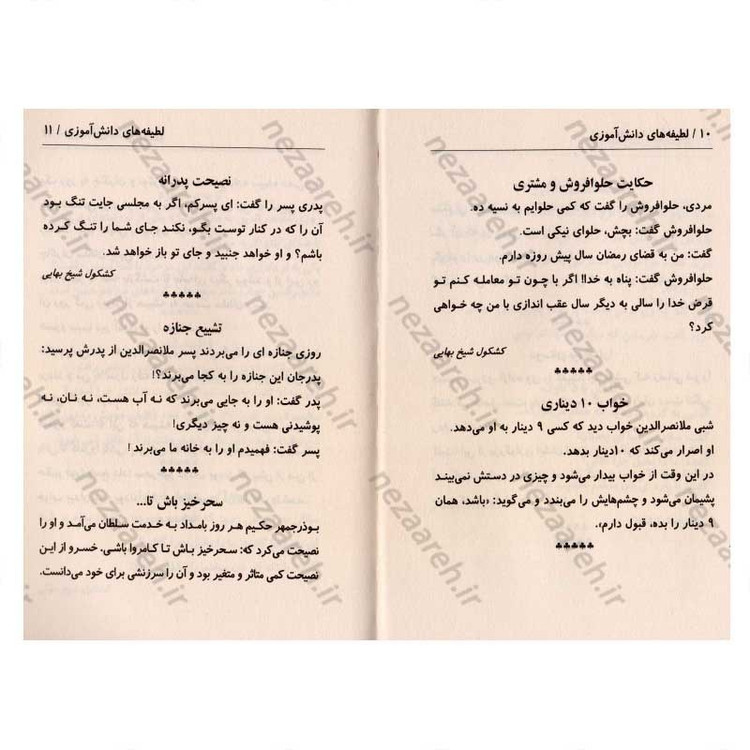 ۱۰ / لطیفه‌های دانش‌آموزی
حکایت حلوافروش و مشتری
مردی، حلوافروش را گفت که کمی حلوایم به نسیه ده.
حلوافروش گفت: بچش، حلوای نیکی است.
گفت: من به قضای رمضان سال پیش روزه دارم.
حلوافروش گفت: پناه به خدا! اگر با چون تو معامله کنم تو
قرض خدا را سالی به دیگر سال عقب اندازی با من چه خواهی
کرد؟
کشکول شیخ بهایی
♣♣♣♣♣
خواب ۱۰ دیناری
شبی ملانصرالدین خواب دید که کسی ۹ دینار به او می‌دهد.
او اصرار می‌کند که ۱۰دینار بدهد.
در این وقت از خواب بیدار می‌شود و چیزی در دستش نمی‌بیند
پشیمان می‌شود و چشم‌هایش را می‌بندد و می‌گوید: «باشد، همان
۹ دینار را بده، قبول دارم».
♣♣♣♣♣
لطیفه‌های دانش‌آموزی / ۱۱
نصیحت پدرانه
پدری پسر را گفت: ای پسرکم، اگر به مجلسی جایت تنگ بود
آن را که در کنار توست بگو، نکند جای شما را تنگ کرده
باشم؟ و او خواهد جنبید و جای تو باز خواهد شد.
کشکول شیخ بهایی
♣♣♣♣♣
تشییع جنازه
روزی جنازه ای را می‌بردند پسر ملانصرالدین از پدرش پرسید:
پدرجان این جنازه را به کجا می‌برند؟!
پدر گفت: او را به جایی می‌برند که نه آب هست، نه نان، نه
پوشیدنی هست و نه چیز دیگری!
پسر گفت: فهمیدم او را به خانه ما می‌برند !
♣♣♣♣♣
سحرخیز باش تا...
بوذرجمهر حکیم هر روز بامداد به خدمت سلطان می‌آمد و او را
نصیحت می‌کرد که: سحرخیز باش تا کامروا باشی. خسرو از این
نصیحت کمی متاثر و متغیر بود و آن را سرزنشی برای خود می‌دانست.
nezaareh.ir
nezaareh.ir
nezaareh.ir
nezaareh.ir
nezaareh.ir
nezaareh.ir
nezaareh.ir
nezaareh.ir